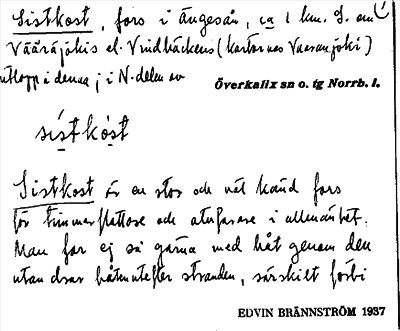 Sistkost, fors i Ängesån, ca 1 km. S. om
Vääräjokis el. Vindbäckens (kartornas Vaaranjoki)
utlopp i denna j i N-delen av
Överkalix sn o. tg Norrb. l.
sistkost
Sistkost är en stor och väl känd fors
för timmerflottare och åkfarare i allmänhet.
Man far ej så gärna med båt genom den
utan drar båten utefter stranden, särskilt förbi
EDVIN BRÄNNSTRÖM 1937